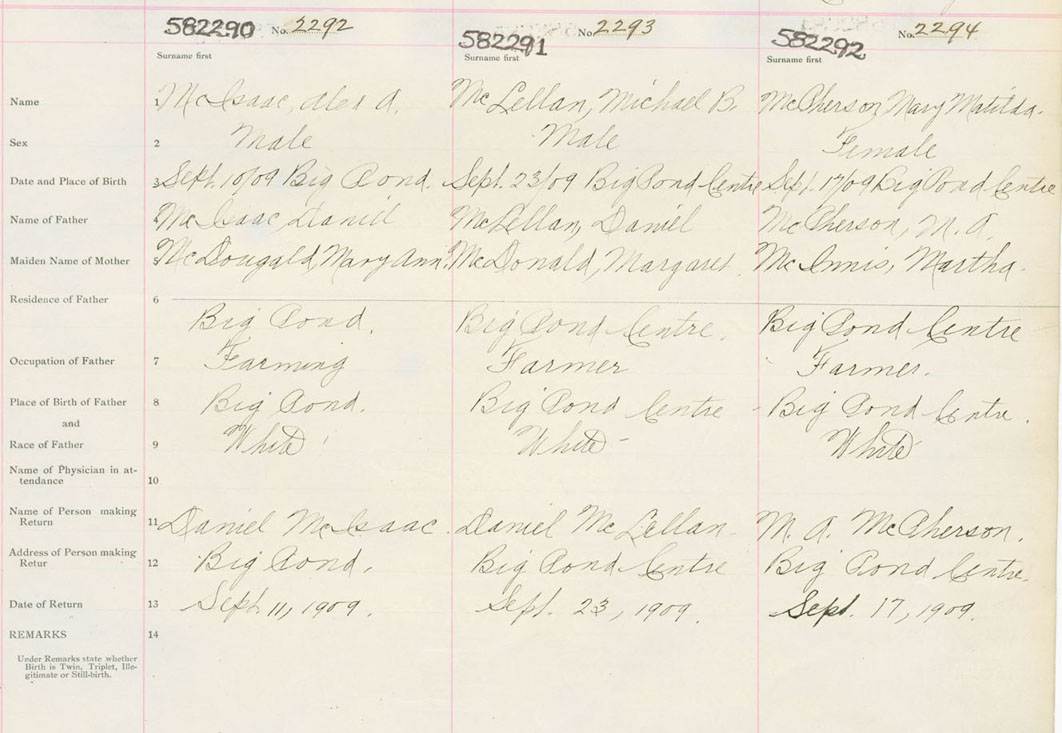 582290 No. 2292 582291 No. 2293 582292 No. 2294
Surname first Surname first Surname first
Name 1 McIsaac, Alex A. McLellan, Michael B McPherson, Mary Matilda.
Sex 2 Male Male Female
Date and Place of Birth 3 Sept. 10/09 Big Pond. Sept. 23/09 Big Pond Centre Sept. 17/09 Big Pond Centre
Name of Father 4 McIsaac, Daniel McLellan, Daniel McPherson, M. A.
Maiden Name of Mother 5 McDougald, Mary Ann. McDonald, Margaret. McInnis, Martha.
Residence of Father 6
Big Pond. Big Pond Centre. Big Pond Centre
Occupation of Father 7 Farming Farmer Farmer.
Place of Birth of Father 8 Big Pond. Big Pond Centre Big Pond Centre.
and
Race of Father 9 White White White
Name of Physician in at-
tendance 10
Name of Person making
Return 11 Daniel McIsaac. Daniel McLellan M. A. McPherson.
Address of Person making
Retur 12 Big Pond. Big Pond Centre Big Pond Centre.
Date of Return 13 Sept. 11, 1909. Sept. 23, 1909. Sept. 17, 1909.
REMARKS 14
Under Remarks state whether
Birth is Twin, Triplet, Ille-
gitimate or Still-birth.